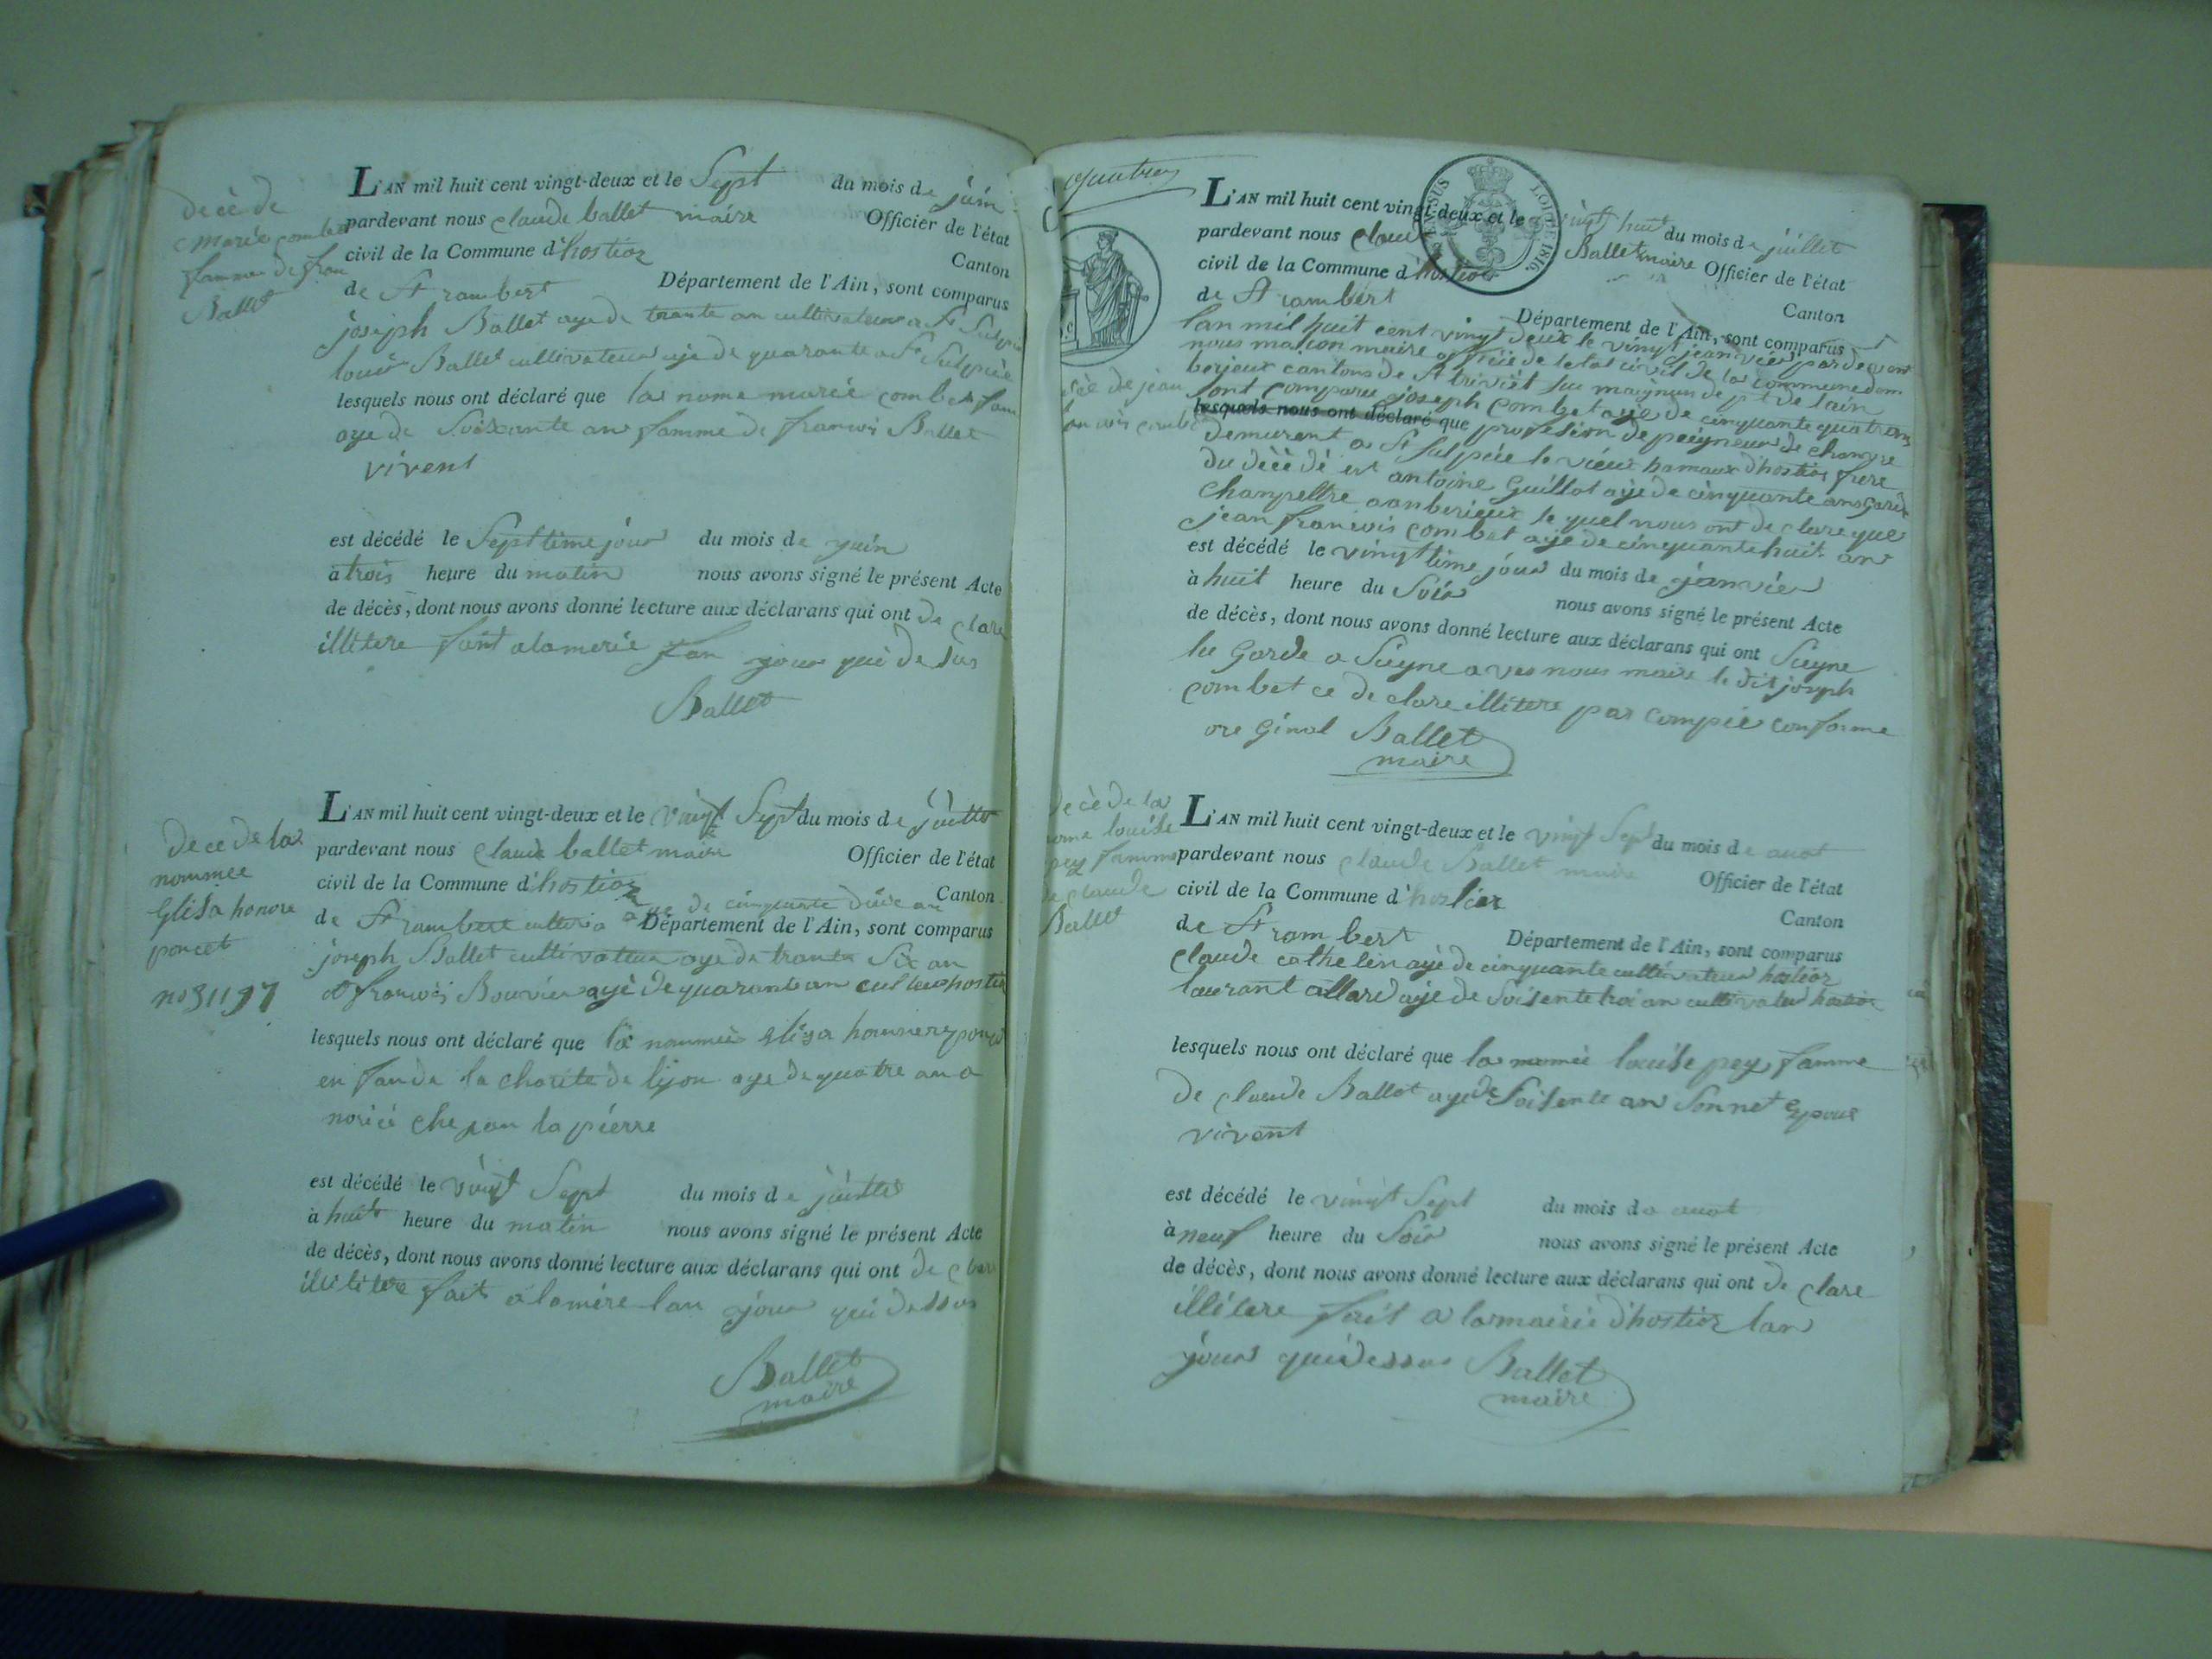 decè de
Marie combet
famme de fran
Ballet
L'AN mil huit cent vingt-deux et le Sept du mois de juin
pardevant nous claude ballet maire Officier de l'état
civil de la Commune d'hostiaz Canton
de St rambert Département de l'Ain, sont comparus
joseph Ballet aye de trante an cultivateur a St Sulpice
louis Ballet cultivateur aje de quarante a St Sulpiíe
lesquels nous ont déclaré que las nome marié combet fam
aye de Soixante an famme de franvoi Ballet
vivent
est décédé le Septtime jour du mois de juin
à trois heure du matin nous avons signé le présent Acte
de décès, dont nous avons donné lecture aux déclarans qui ont de clare
illétere fant alamerie lan jour qui de sus
Ballet
dece de las
nommee
Elisa honore
poncet
no 31197
L'AN mil huit cent vingt-deux et le vingt Sept du mois de juillet
pardevant nous claude ballet maire Officier de l'état
civil de la Commune d'hostiaz Canton
de St rambert Département de l'Ain, sont comparus
aye de cinquante an
joseph Ballet cultivateur aye de trante Six an
et franvoi Bouvier ayé de quarante an cultev hostia
lesquels nous ont déclaré que la nommée elisa
en fan de la charite de lijon aye de quatre an a
norici che jan la piérre
est décédé le vingt Sept du mois de juillet
à huit heure du matin nous avons signé le présent Acte
de décès, dont nous avons donné lecture aux déclarans qui ont de clare
illé litere fait a lamére lan jour qui dessus
Ballet
maire
quatre
L'AN mil huit cent vingt-deux et le vingt huit du mois de juillet
pardevant nous claude Ballet maire Officier de l'état
civil de la Commune d'hostiaz Canton
de St rambert Département de l'Ain, sont comparus
TIMBRE LOI DE 1816
lan mil huit cent vingt deux le vingt janvier pardevant
nous maire offisié de letat civil de la commune dam
berjeux cantons de St trivièt sur maignan de pt de lain
sont comparu joseph combet aye de cinquante quatrans
lesquels nous ont déclaré que profesion de peigneur de chanvre
demurent a St Sulpiíe le vieux hamaux d'hostiaz frere
du décèdé et antoine Guillot aye de cinquante ans garde
champeltre a anberieux le quel nous ont de clare que
jean franvois combet aye de cinquante huit an
est décédé le vingttime jour du mois de janvier
à huit heure du Soir nous avons signé le présent Acte
de décès, dont nous avons donné lecture aux déclarans qui ont Siegne
lie Garde a Siegne aves nous maire le dit joseph
combet ce de clare illétere par compie conforme
ore ginal Ballet
maire
de jean
combet
decè de la
nome louise
pey famme
de claude
Ballet
L'AN mil huit cent vingt-deux et le vingt Sept du mois de auot
pardevant nous claude Ballet maire Officier de l'état
civil de la Commune d'hostiaz Canton
de St rambert Département de l'Ain, sont comparus
claude cathelin ayé de cinquante cultivateur hostiaz
laurant allard aje de Soisente an cultivateur hostiaz
lesquels nous ont déclaré que la nomée louise pey famme
de claude Ballet aye de Soisente an Sonnet epoux
vivent
est décédé le vingt Sept du mois de auot
à neuf heure du Soir nous avons signé le présent Acte
de décès, dont nous avons donné lecture aux déclarans qui ont de clare
illétere fait a lamairie d'hostiaz lan
jour qui dessus Ballet
maire